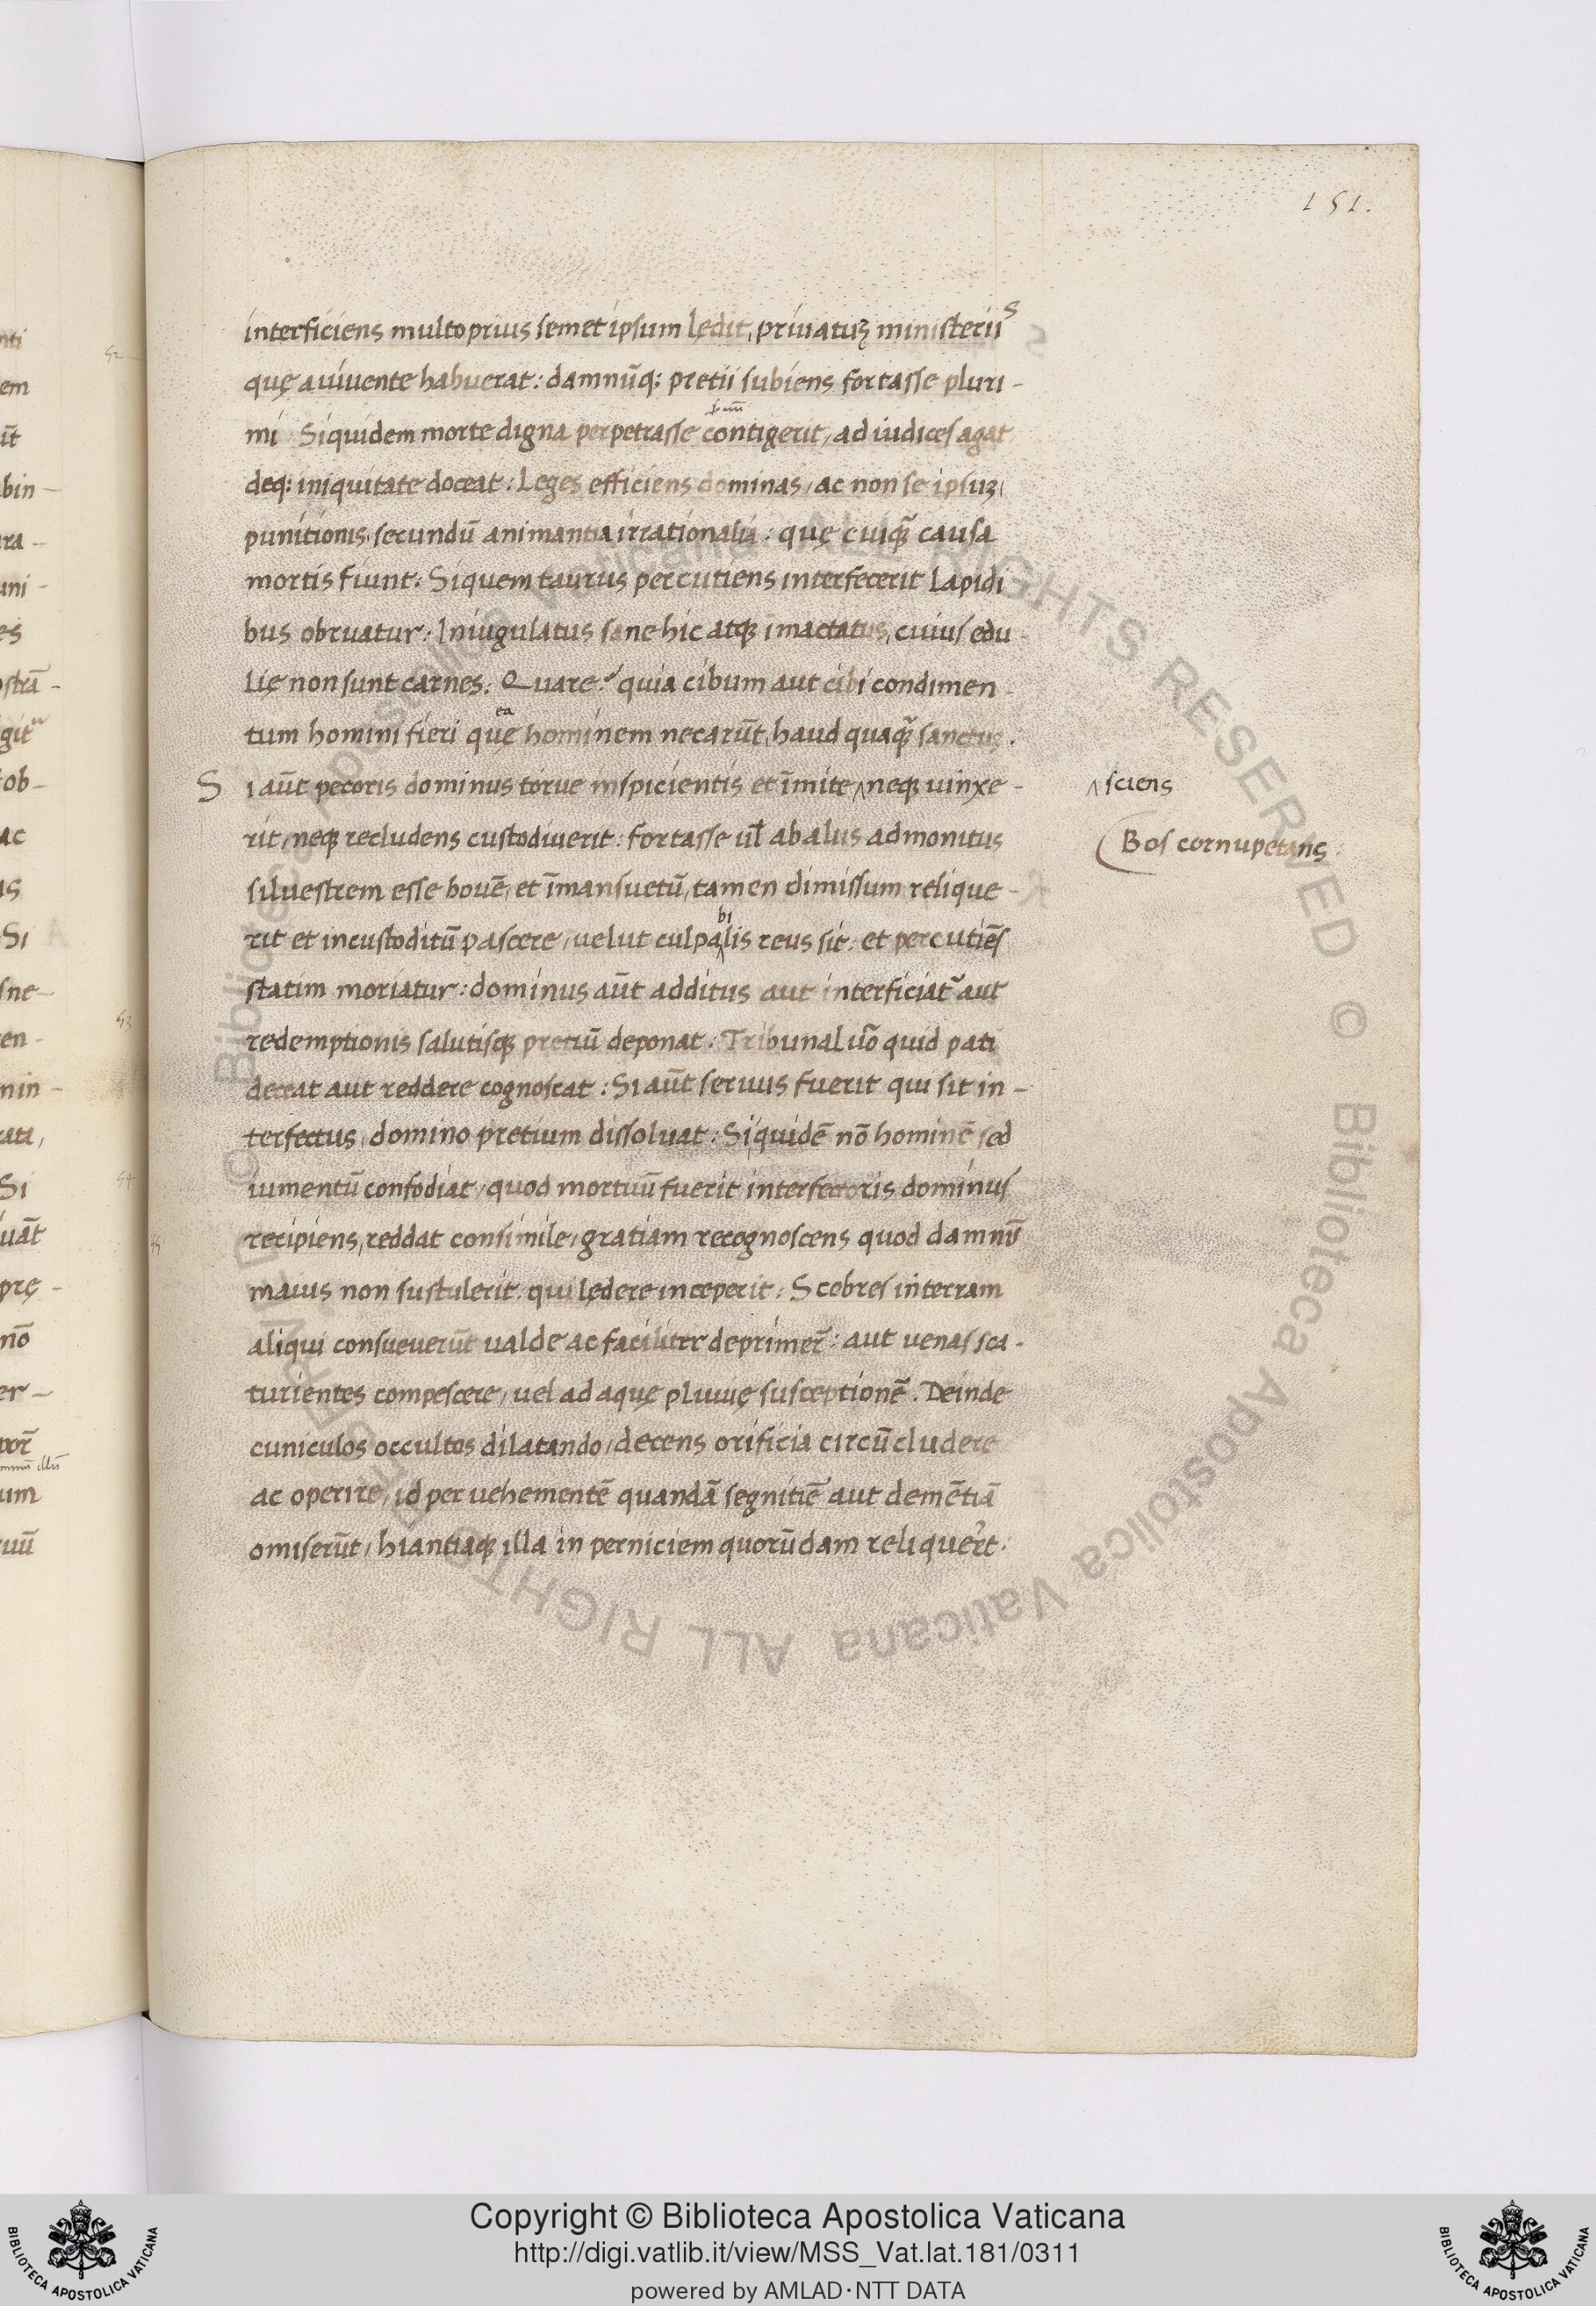 151.
interficiens multo prius semet ipsum lędit, privatuʒ ministeriis
quę a vivente habuerat: damnūq; pretii subiens fortasse pluri-
mi. Siquidem morte digna perpetrasse contigerit, ad iudices agat
deq; iniquitate doceat: Leges efficiens dominas, ac non se ipsuʒ,
punitionis, secundū animantia irrationalia: quę cuiqꝫ̃ causa
mortis fiunt: Siquem taurus percutiens interfecerit Lapidi
bus obruatur: Iniugulatus sane hic atqꝫ imactatus, cuius edu-
lię non sunt carnes: Quare? quia cibum aut cibi condimen-
tum homini fieri quę ea hominem necarūt, haud quaqꝫ̃ sanctus.
Si aūt pecoris dominus torve inspicientis et īmite ^ neqꝫ vinxe-
^ sciens
rit, neqꝫ recludens custodiverit: fortasse ul̄ ab aliis admonitus
Bos cornupetans:
silvestrem esse bovē, et īmansuetū, tamen dimissum relique-
rit et incustoditū pascere, velut culpabilis reus sit: et percutiēs
statim moriatur: dominus aūt additus aut interficiat᷑ aut
redemptionis salutisqꝫ pretiū deponat: Tribunal uō quid pati
deceat aut reddere cognoscat: Si aūt servus fuerit qui sit in-
terfectus, domino pretium dissolvat: Siquidē nō hominē sed
iumentū confodiat, quod mortuū fuerit interfectoris dominus
recipiens, reddat consimile, gratiam recognoscens quod damnū
maius non sustulerit: qui lędere inceperit: Scobres in terram
aliqui consueverūt valde ac faciliter deprimer̄: aut venas sca-
turientes compescere, vel ad aquę pluvię susceptionē. Deinde
cuniculos occultos dilatando, decens orificia circūcludere
ac operire, id per vehementē quandā segnitiē aut demētiā
omiserūt, hiantiaqꝫ illa in perniciem quorūdam reliquer̄t:
Copyright © Biblioteca Apostolica Vaticana
http://digi.vatlib.it/view/MSS_Vat.lat.181/0311
powered by AMLAD·NTT DATA